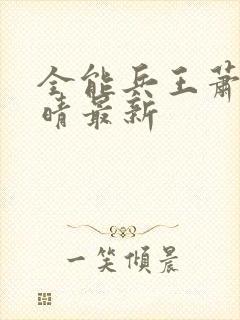 全能兵王萧
晴最新
一笑倾晨